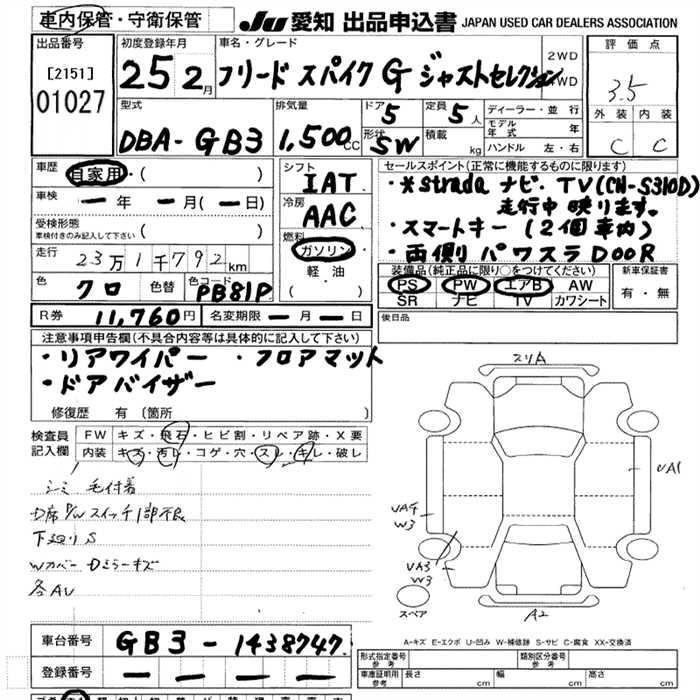 車内保管・守衛保管 JU 愛知 出品申込書 JAPAN USED CAR DEALERS ASSOCIATION
出品番号
[2151]
01027
初度登録年月
25 2月
車名・グレード
フリード スパイク G ジャストセレクション
2WD
4WD
評価点
3.5
外装 内装
C C
型式
DBA-GB3
排気量
1,500cc
ドア
5
形状
SW
定員
5人
積載
kg
ディーラー・並行
モデル年式 年
ハンドル 左・右
車歴
自家用・( )
車検
ー年 ー月(ー日)
受検形態
車検付きのみ記入して下さい ( )
走行
23万1千792km
色
クロ
色替
色コード
PB81P
シフト
IAT
冷房
AAC
燃料
ガソリン
軽油
( )
セールスポイント(正常に機能するものに限ります)
・*strada ナビ・TV(CN-S310D)
走行中映ります。
・スマートキー(2個車内)
・両側パワスラDOOR
装備品(純正品に限り○をつけてください)
PS PW エアB AW
SR ナビ TV カワシート
新車保証書
有・無
R券 11,760円 名変期限 ー月ー日
後日品
注意事項申告欄(不具合内容等は具体的に記入して下さい)
・リアワイパー ・フロアマット
・ドアバイザー
修復歴 有 〔箇所 〕
検査員記入欄
FW キズ・飛石・ヒビ割・リペア跡・X要
内装 キズ・汚れ・コゲ・穴・スレ・キレ・破レ
シミ 毛付着
D席P/Wスイッチ1部不良
下廻りS
Wカバー Dミラーキズ
各AU
スリA
UA1
UA4
W3
UA3
W3
スペア
A2
A-キズ E-エクボ U-凹み W-補修跡 S-サビ C-腐食 XX-交換済
車台番号 GB3-1438747
登録番号 ー ー ー ー
形式指定番号
参考
類別区分番号
参考
車庫証明用
参考
長さ cm 幅 cm 高さ cm